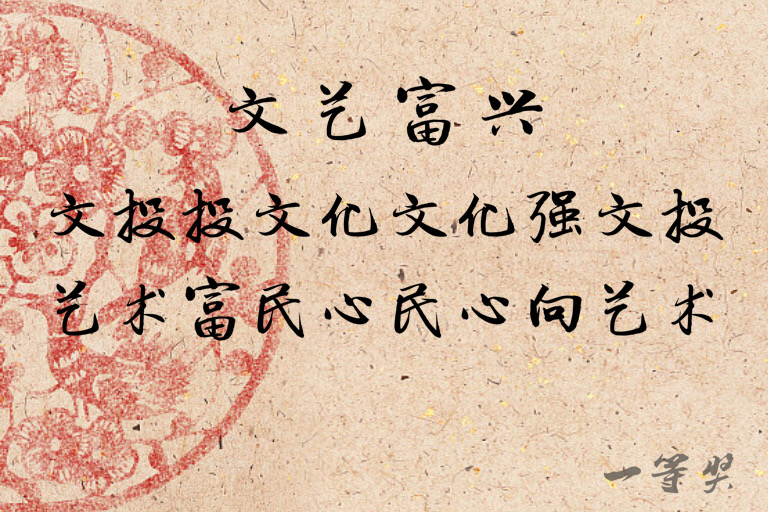 文艺富兴
文投投文化文化强文投
艺术富民心民心向艺术
一等奖